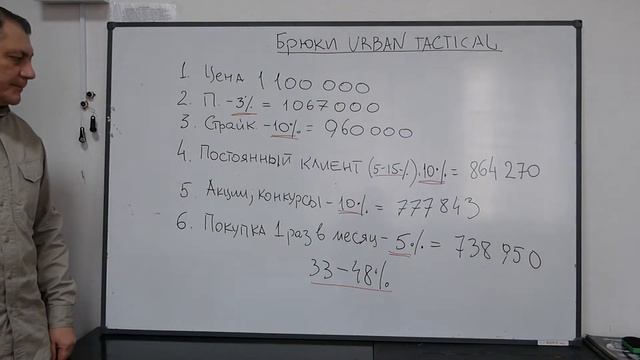 Брюки URBAN TACTICAL
1. Цена 1 100 000
2. П. -3% = 1067000
3. Страйк -10% = 960000
4. Постоянный клиент (5-15%) 10% = 864270
5. Акции, конкурсы - 10% = 777843
6. Покупка 1 раз в месяц - 5% = 738950
33-48%